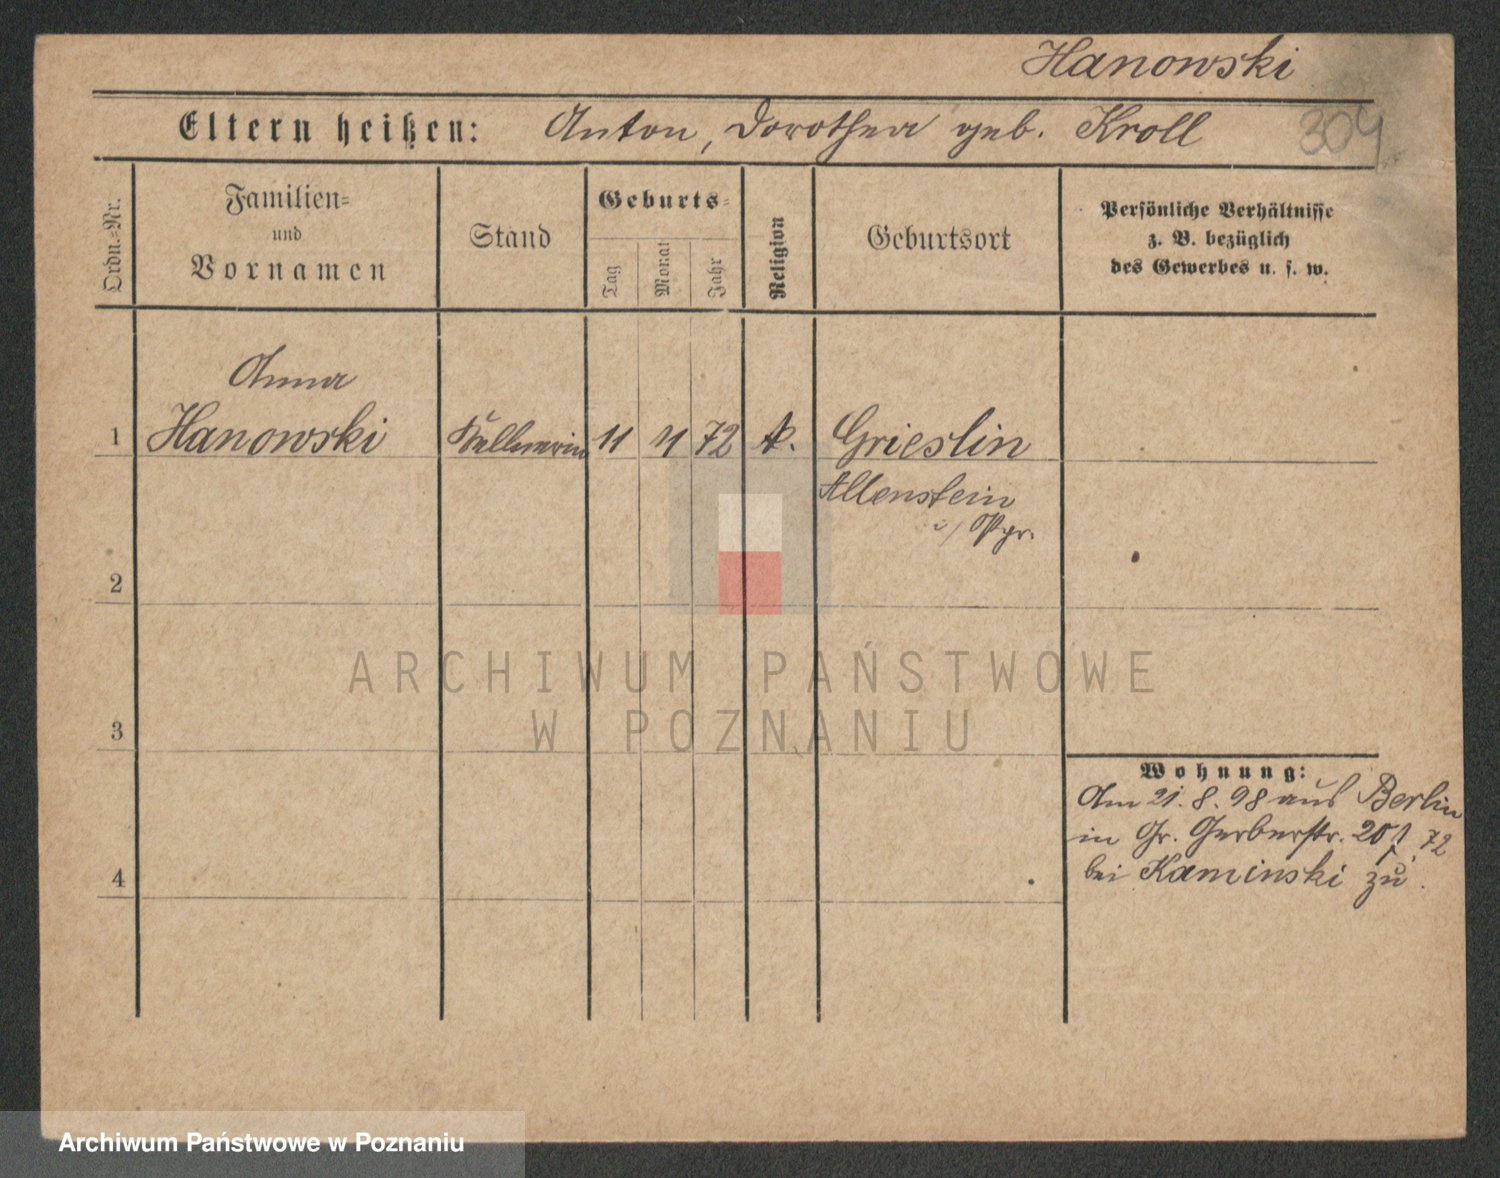 Hanowski
Eltern heißen: Anton, Dorothea geb. Kroll
304
Ordn.=Nr.
Familien=
und
Vornamen
Stand
Geburts=
Tag
Monat
Jahr
Religion
Geburtsort
Persönliche Verhältnisse
z. B. bezüglich
des Gewerbes u. s. w.
Anna
1 Hanowski Kellnerin 11 11 72 k. Grieslin
Allenstein
i/ Opr.
2
ARCHIWUM PAŃSTWOWE
W POZNANIU
3
Wohnung:
Am 21. 8. 98 aus Berlin
in Gr. Gerberstr. 20 72
bei Kaminski zu.
4
Archiwum Państwowe w Poznaniu